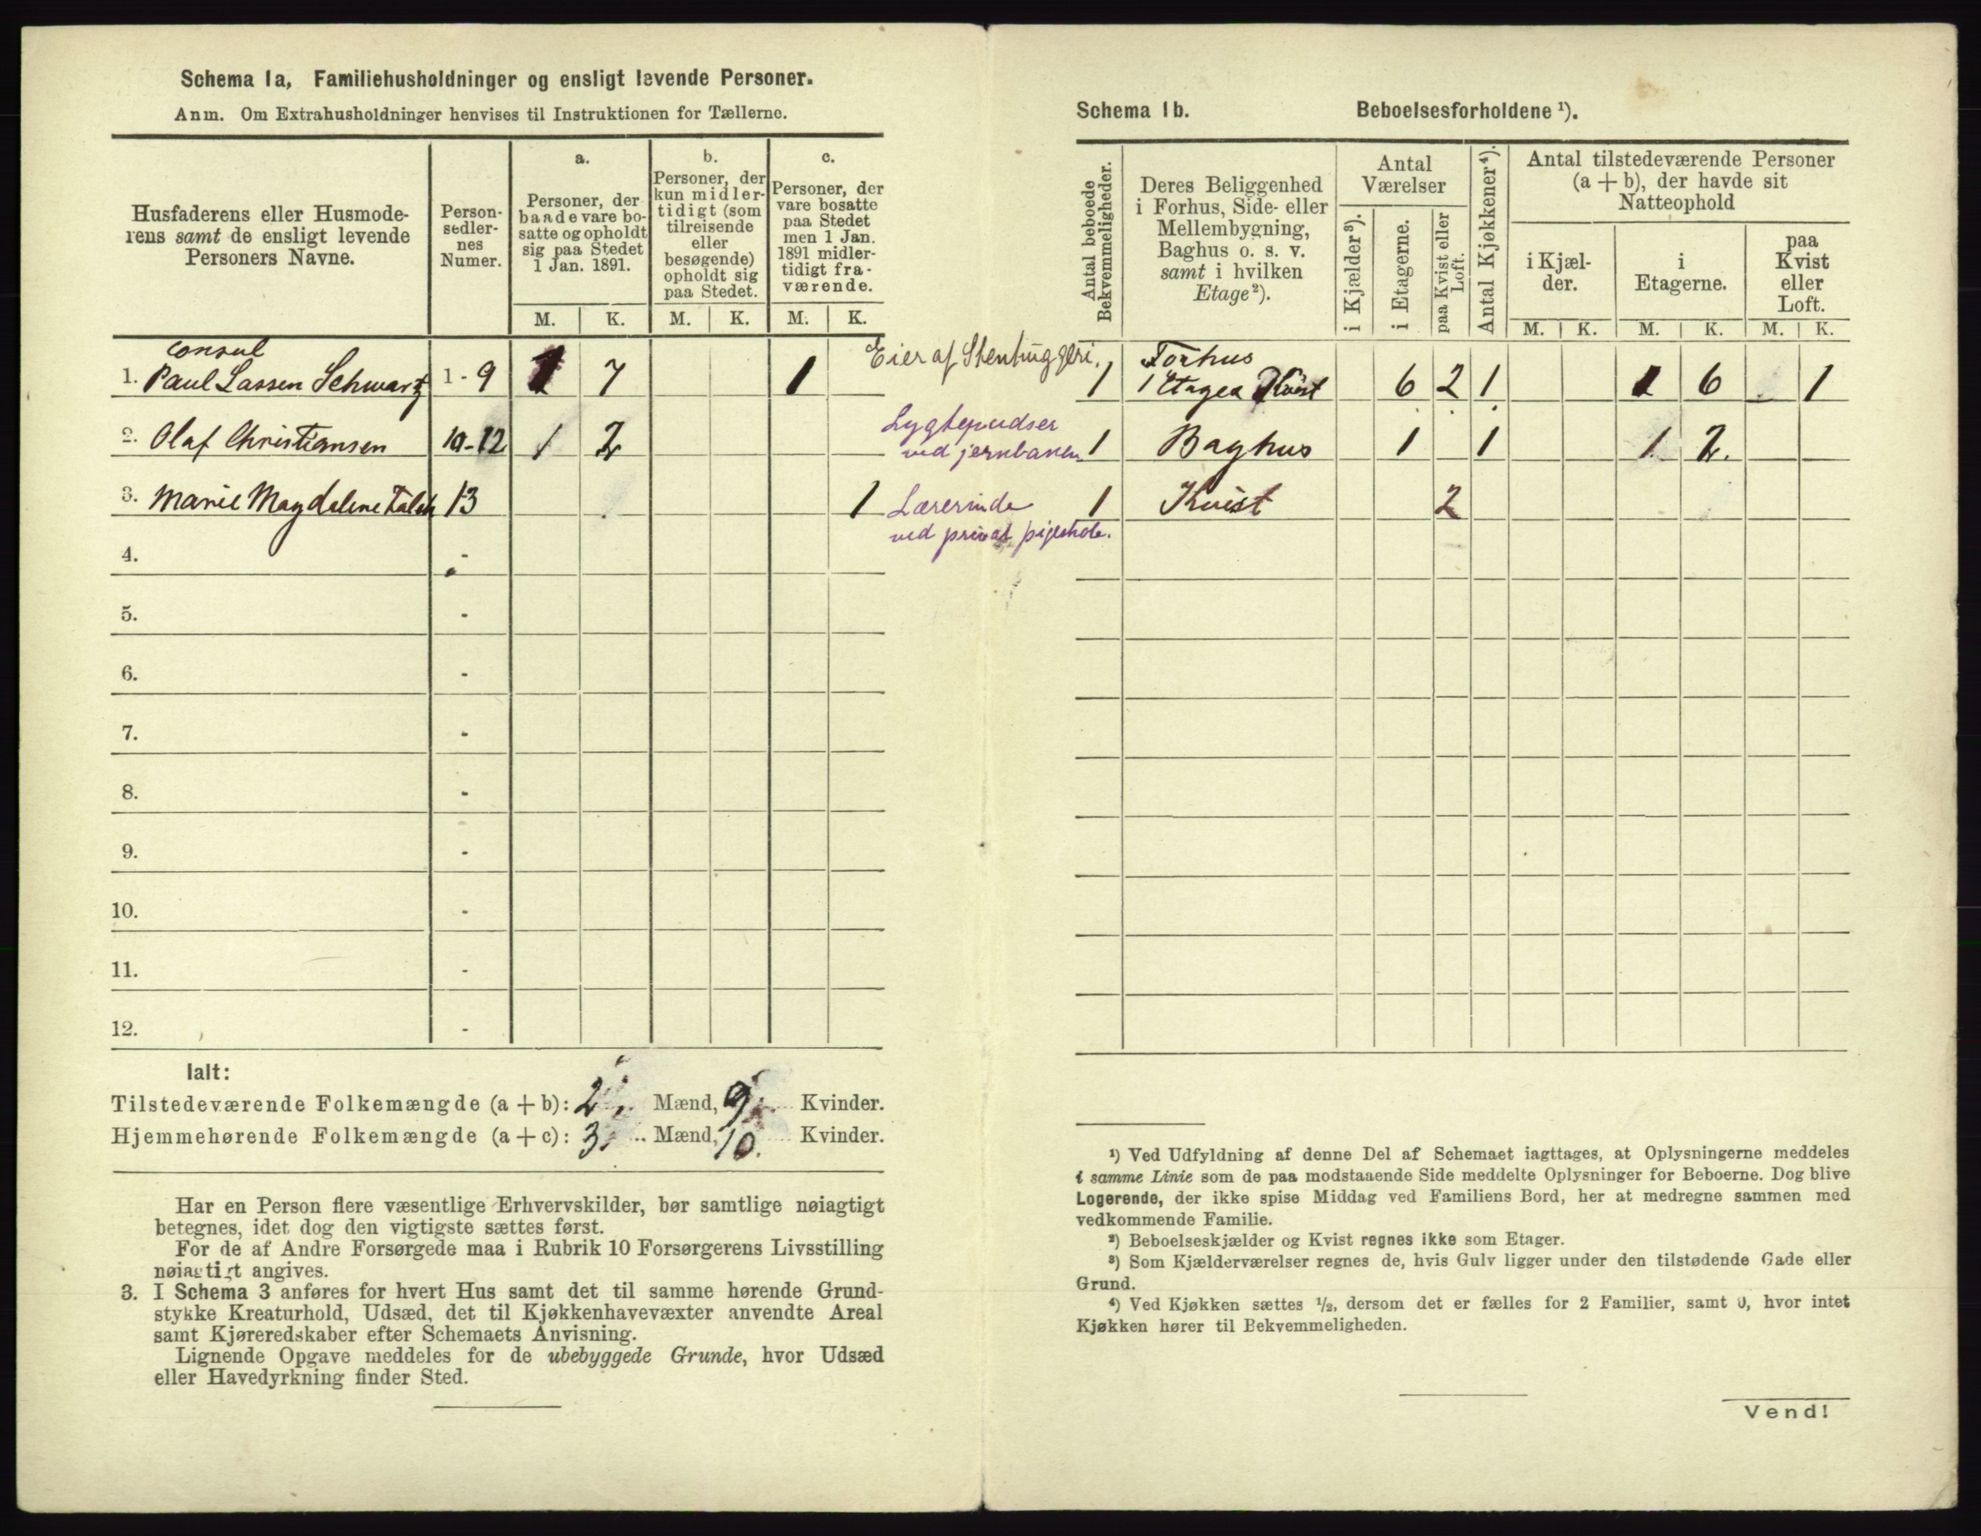 Schema 1a, Familiehusholdninger og ensligt levende Personer.
Anm. Om Extrahusholdninger henvises til Instruktionen for Tællerne.
Husfaderens eller Husmode-
rens samt de ensligt levende
Personers Navne.
Person-
sedler-
nes
Numer.
a.
Personer, der
baade vare bo-
satte og opholdt
sig paa Stedet
1 Jan. 1891.
b.
Personer, der
kun midler-
tidigt (som
tilreisende
eller
besøgende)
opholdt sig
paa Stedet.
c.
Personer, der
vare bosatte
paa Stedet
men 1 Jan.
1891 midler-
tidigt fra-
værende.
M. K. M. K. M. K.
Consul
1. Paul Lassen Schwartz 1-9 1 7 1
2. Olaf Christiansen 10-12 1 2
3. Marie Magdalene 13 1
4. -
5. -
6. -
7. -
8. -
9. -
10. -
11. -
12. -
Ialt:
Tilstedeværende Folkemængde (a + b): 2 Mænd, 9 Kvinder.
Hjemmehørende Folkemængde (a + c): 3 Mænd, 10. Kvinder.
Har en Person flere væsentlige Erhvervskilder, bør samtlige nøiagtigt
betegnes, idet dog den vigtigste sættes først.
For de af Andre Forsørgede maa i Rubrik 10 Forsørgerens Livsstilling
nøiagtigt angives.
3. I Schema 3 anføres for hvert Hus samt det til samme hørende Grund-
stykke Kreaturhold, Udsæd, det til Kjøkkenhavevæxter anvendte Areal
samt Kjøreredskaber efter Schemaets Anvisning.
Lignende Opgave meddeles for de ubebyggede Grunde, hvor Udsæd
eller Havedyrkning finder Sted.
Eier af Stenhuggeri.
Lygtepudser
ved jernbanen
Lærerinde
ved privat pigeskole.
Schema 1b. Beboelsesforholdene ¹).
Antal beboede
Bekvemmeligheder.
Deres Beliggenhed
i Forhus, Side- eller
Mellembygning,
Baghus o. s. v.
samt i hvilken
Etage²).
Antal
Værelser
i Kjælder³).
i Etagerne.
paa Kvist eller
Loft.
Antal Kjøkkener⁴).
Antal tilstedeværende Personer
(a + b), der havde sit
Natteophold
i Kjæl-
der.
i
Etagerne.
paa
Kvist
eller
Loft.
M. K. M. K. M. K.
Forhus
1 1 Etage Kvist 6 2 1 1 6 1
1 Baghus 1 1 1 2.
1 Kvist 2
¹) Ved Udfyldning af denne Del af Schemaet iagttages, at Oplysningerne meddeles
i samme Linie som de paa modstaaende Side meddelte Oplysninger for Beboerne. Dog blive
Logerende, der ikke spise Middag ved Familiens Bord, her at medregne sammen med
vedkommende Familie.
²) Beboelseskjælder og Kvist regnes ikke som Etager.
³) Som Kjælderværelser regnes de, hvis Gulv ligger under den tilstødende Gade eller
Grund.
⁴) Ved Kjøkken sættes ¹/₂, dersom det er fælles for 2 Familier, samt 0, hvor intet
Kjøkken hører til Bekvemmeligheden.
Vend!